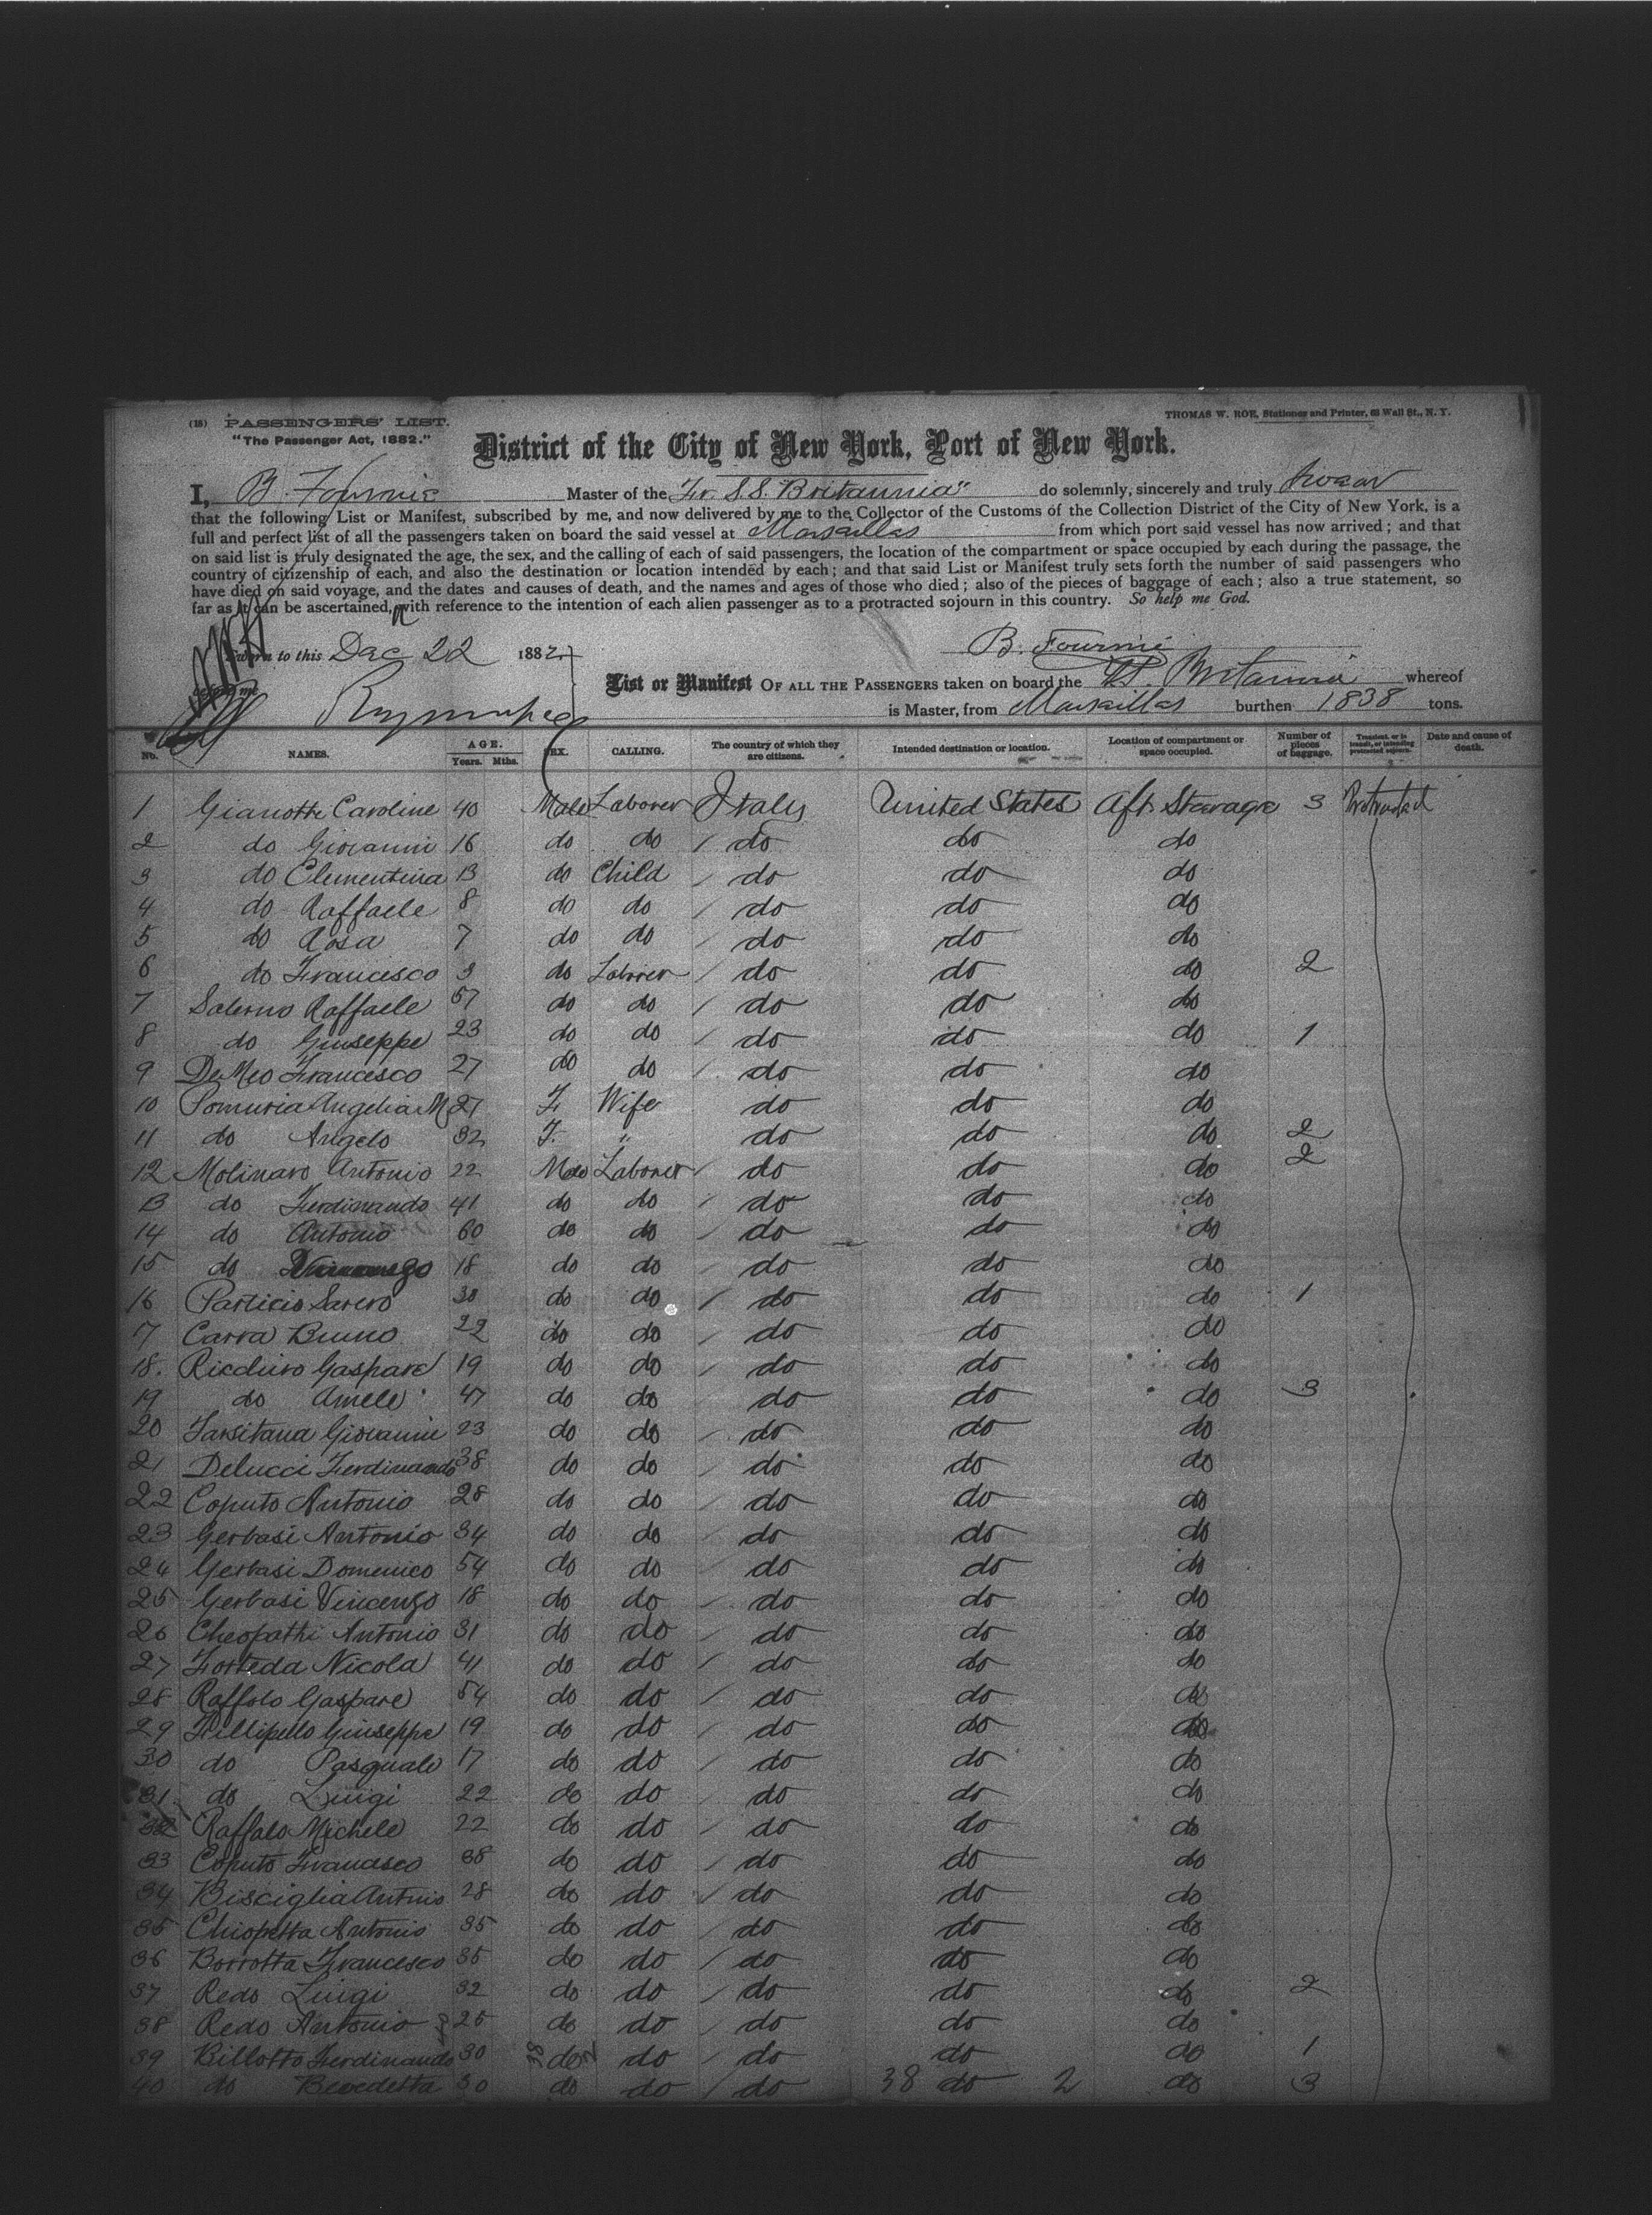 (18) PASSENGERS' LIST.
"The Passenger Act, 1882."
THOMAS W. ROE, Stationer and Printer, 63 Wall St., N. Y.
District of the City of New York, Port of New York.
I, B. Fournie Master of the Fr. S.S. "Britannia" do solemnly, sincerely and truly swear
that the following List or Manifest, subscribed by me, and now delivered by me to the Collector of the Customs of the Collection District of the City of New York, is a
full and perfect list of all the passengers taken on board the said vessel at Marseilles from which port said vessel has now arrived; and that
on said list is truly designated the age, the sex, and the calling of each of said passengers, the location of the compartment or space occupied by each during the passage, the
country of citizenship of each, and also the destination or location intended by each; and that said List or Manifest truly sets forth the number of said passengers who
have died on said voyage, and the dates and causes of death, and the names and ages of those who died; also of the pieces of baggage of each; also a true statement, so
far as it can be ascertained, with reference to the intention of each alien passenger as to a protracted sojourn in this country. So help me God.
Sworn to this Dec 22 1882
B. Fournie
before me
List or Manifest OF ALL THE PASSENGERS taken on board the Britannia whereof
is Master, from Marseilles burthen 1838 tons.
No. NAMES. AGE. Years. Mths. SEX. CALLING. The country of which they are citizens. Intended destination or location. Location of compartment or space occupied. Number of pieces of baggage. Transient, or in transit, or intending protracted sojourn. Date and cause of death.
1 Gianotti Caroline 40 Male Laborer Italy United States Aft. Steerage 3 Protracted
2 do Giovanni 16 do do do do do
3 do Clementina 13 do Child do do do
4 do Raffaele 8 do do do do do
5 do Rosa 7 do do do do do
6 do Francesco 3 do Laborer do do do 2
7 Salerno Raffaele 57 do do do do do
8 do Giuseppe 23 do do do do do 1
9 DeMeo Francesco 27 do do do do do
10 Angelia M 27 F. Wife do do do
11 do Angelo 32 F. " do do do 2
12 Molinaro Antonio 22 Male Laborer do do do 2
13 do Ferdinando 41 do do do do do
14 do Antonio 60 do do do do do
15 do 18 do do do do do
16 Particio Savero 30 do do do do do 1
17 Carra Bruno 22 do do do do do
18. Gaspare 19 do do do do do
19 do Amele 47 do do do do do 3
20 Farsitana Giovanni 23 do do do do do
21 Delucci Ferdinando 38 do do do do do
22 Coputo Antonio 28 do do do do do
23 Gerbasi Antonio 34 do do do do do
24 Gerbasi Domenico 54 do do do do do
25 Gerbasi Vincenzo 18 do do do do do
26 Cheopathi Antonio 31 do do do do do
27 Nicola 41 do do do do do
28 Raffolo Gaspare 54 do do do do do
29 Fillipello Giuseppe 19 do do do do do
30 do Pasquale 17 do do do do do
31 do Luigi 22 do do do do do
32 Raffalo Michele 22 do do do do do
33 Coputo Francisco 38 do do do do do
34 Bisciglia Antonio 28 do do do do do
35 Chiopetta Antonio 35 do do do do do
36 Borrotta Francesco 35 do do do do do
37 Redo Luigi 32 do do do do do 2
38 Redo Antonio 25 do do do do do
39 Billotto Ferdinando 30 do do do do do 1
40 do Benedetta 30 do do do 38 do 2 do 3